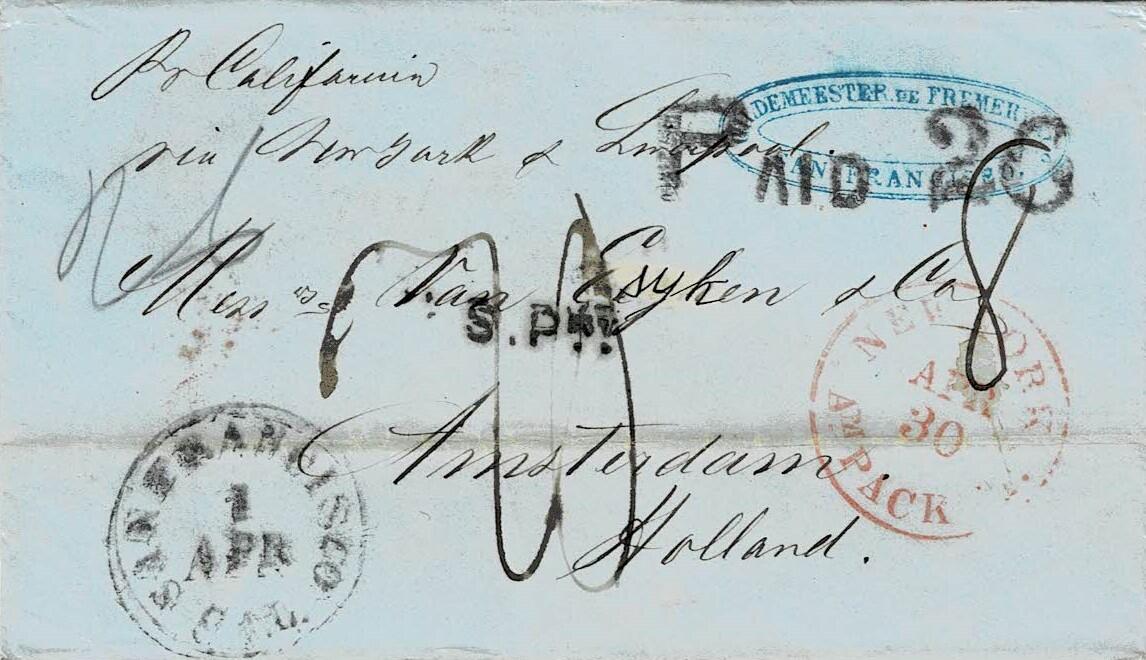 Pr California
via New York & Liverpool.
DEMEESTER DE FREMERY
SAN FRANCISCO.
PAID 26
8
Messrs Van Esyken & Co
S.PKT.
NEW YORK
APR
30
AM PACK
Amsterdam.
Holland.
SAN FRANCISCO
1
APR
CAL.